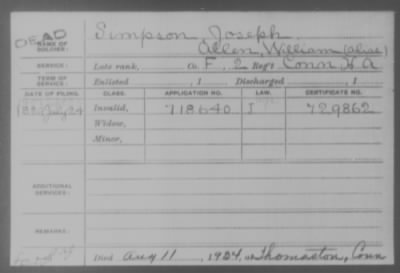 DEAD
Simpson, Joseph.
NAME OF SOLDIER:
Allen, William (alias)
SERVICE: Late rank, Co. F, 2 Reg't Conn H A
TERM OF SERVICE: Enlisted , 1 Discharged , 1
DATE OF FILING. CLASS. APPLICATION NO. LAW. CERTIFICATE NO.
July 24 Invalid, 718640 I 729862
Widow,
Minor,
ADDITIONAL SERVICES:
REMARKS:
Died Aug 11, 1924, at Thomaston, Conn